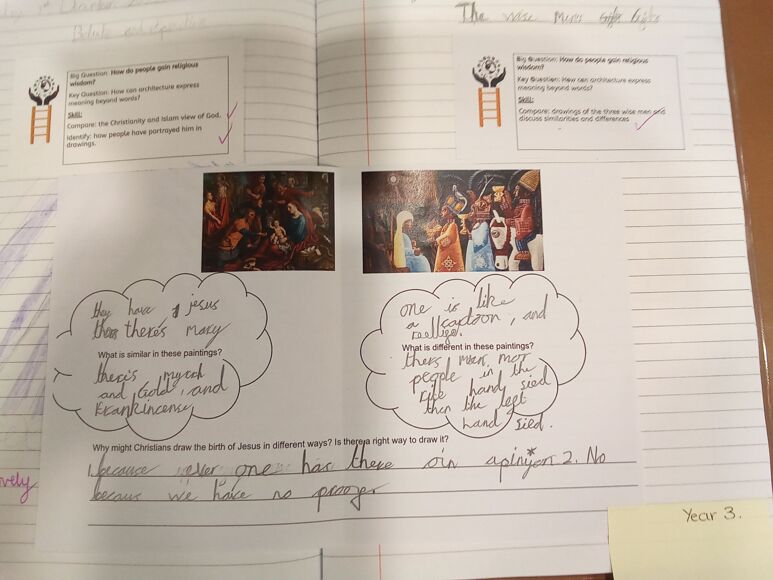 The wise men
Big Question: How do people gain religious
wisdom?
Key Question: How can architecture express
meaning beyond words?
Skill:
Compare: the Christianity and Islam view of God.
Identify: how people have portrayed him in
drawings.
Big Question: How do people gain religious
wisdom?
Key Question: How can architecture express
meaning beyond words?
Skill:
Compare: drawings of the three wise men and
discuss similarities and differences
they have jesus
there's mary
What is similar in these paintings?
there's myrrh
and Gold, and
Frankincense
one is like
a cartoon, and
What is different in these paintings?
thers more
people in the
hand sied
then the left
hand sied.
Why might Christians draw the birth of Jesus in different ways? Is there a right way to draw it?
1 because one has there oin apinyon 2. No
becaus we have no
vely
Year 3.